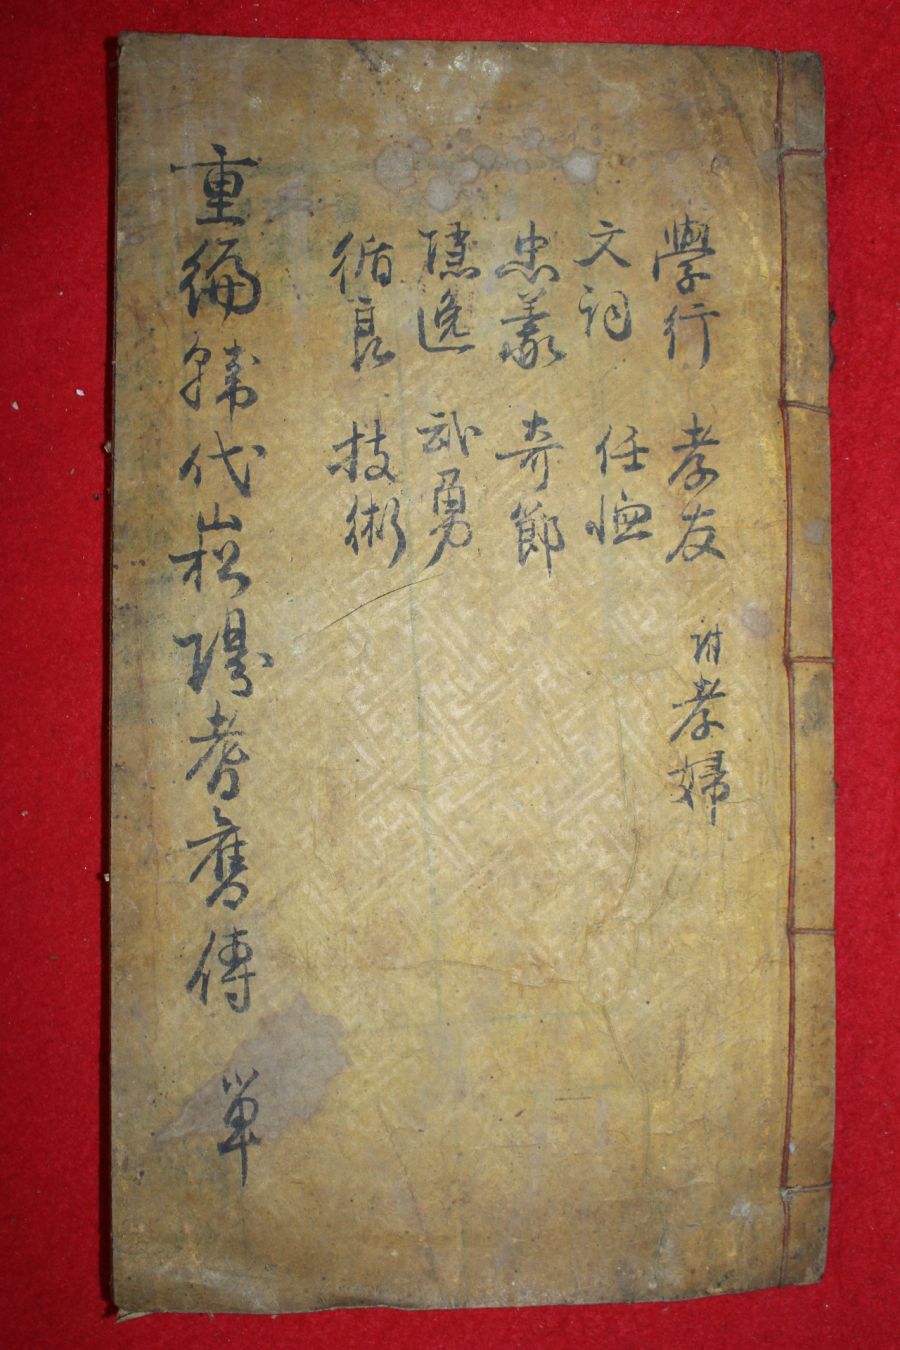 學行 孝友 附孝婦
文詞 任恤
忠義 奇節
隱逸 武勇
循良 技術
重編韓代崧陽耆舊傳 單